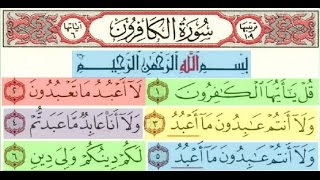 ترتيبها ١٩ سورة الكافرون آياتها ٦
بِسْمِ اللَّهِ الرَّحْمَٰنِ الرَّحِيمِ
قُلْ يَٰٓأَيُّهَا ٱلْكَٰفِرُونَ ١ لَآ أَعْبُدُ مَا تَعْبُدُونَ ٢
وَلَآ أَنتُمْ عَٰبِدُونَ مَآ أَعْبُدُ ٣ وَلَآ أَنَا۠ عَابِدٌ مَّا عَبَدتُّمْ ٤
وَلَآ أَنتُمْ عَٰبِدُونَ مَآ أَعْبُدُ ٥ لَكُمْ دِينُكُمْ وَلِىَ دِينِ ٦